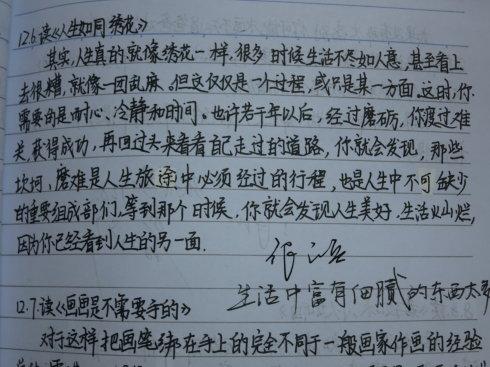 12.6.读《人生如同绣花》
其实,人生真的就像绣花一样,很多时候生活不尽如人意,甚至看上
去很糟,就像一团乱麻。但这仅仅是一个过程,或只是某一方面,这时,你
需要的是耐心、冷静和时间。也许若干年以后,经过磨砺,你度过难
关,获得成功,再回过头来看看自己走过的道路,你就会发现,那些
坎坷、磨难是人生旅途中必须经过的行程,也是人生中不可缺少
的重要组成部们,等到那个时候,你就会发现人生美好,生活火山烂,
因为你已经看到人生的另一面.
生活中富有细腻的东西太多
12.7.读《画画是不需要手的》
对于这样把画笔绑在手上的完全不同于一般画家作画的经验